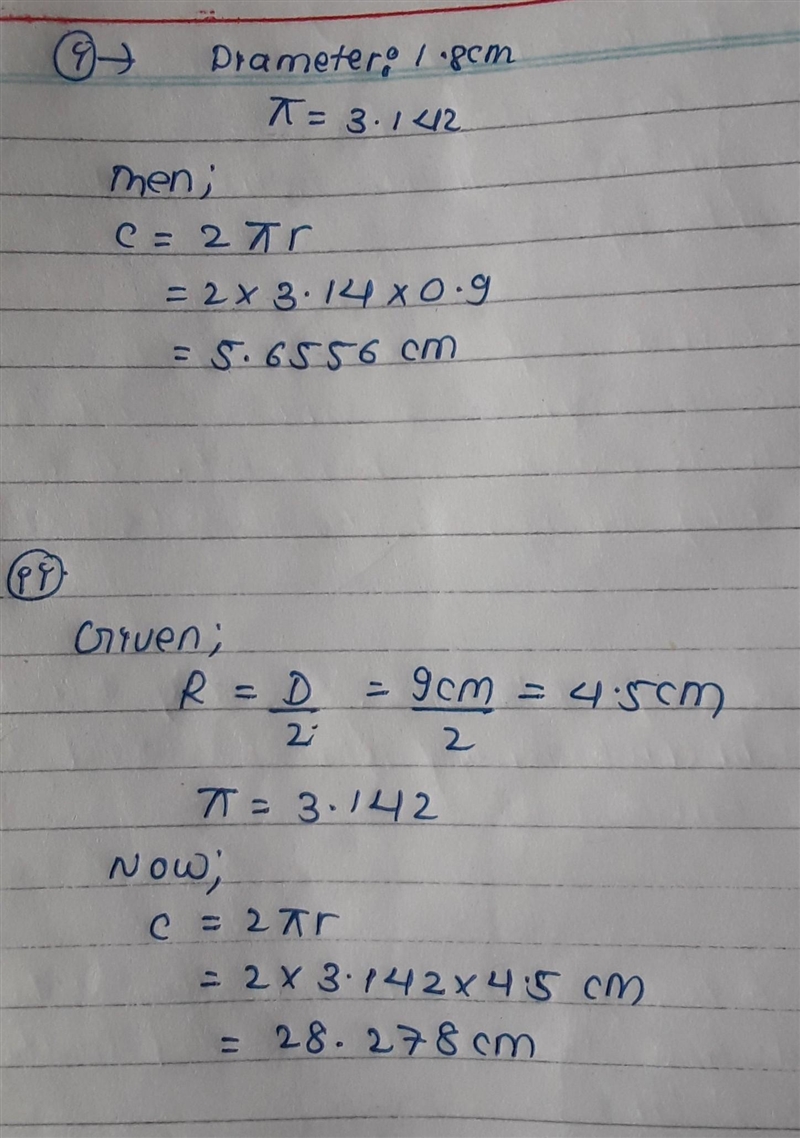 ५→ Diameter: 1.8cm
π = 3.142
Then;
C = 2πr
= 2 × 3.14 × 0.9
= 5.6556 cm
१५.
Given;
R = D/2 = 9cm/2 = 4.5cm
π = 3.142
Now;
C = 2πr
= 2 × 3.142 × 4.5 cm
= 28.278cm